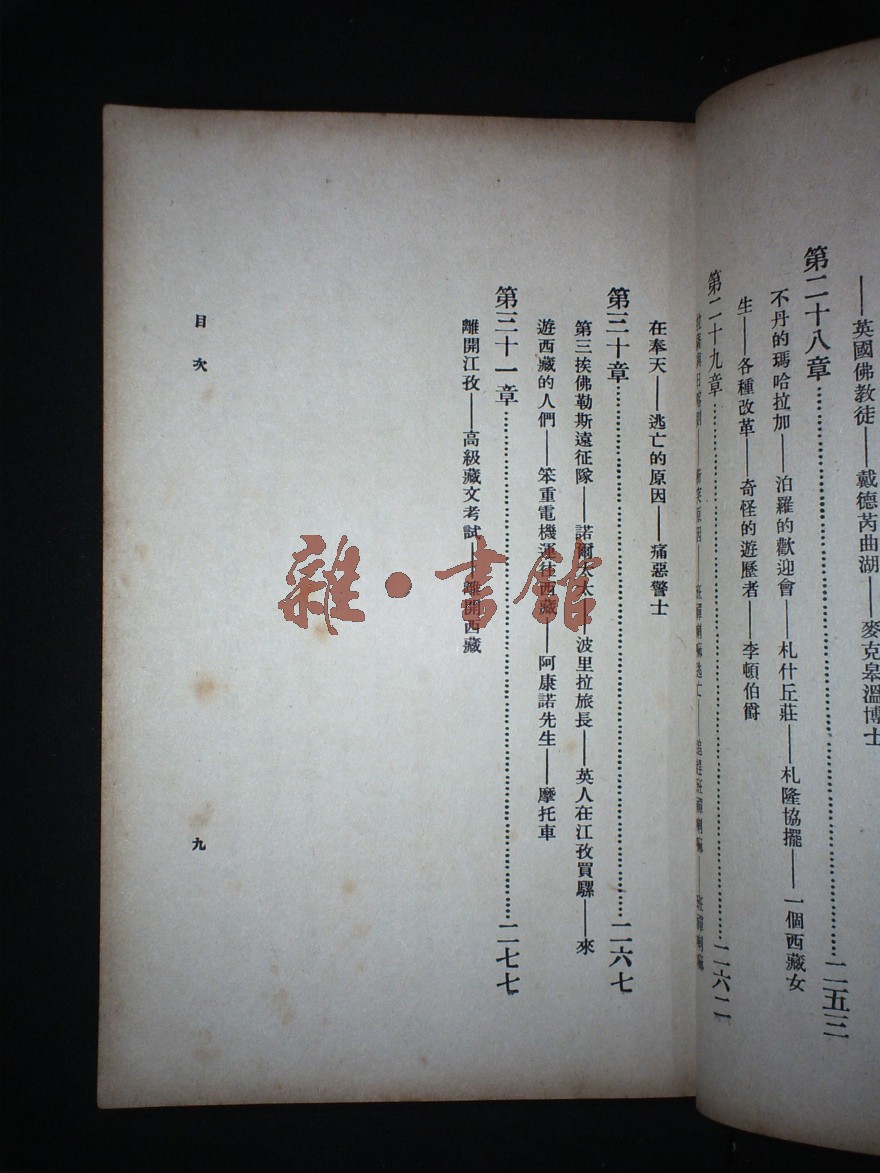 ——英國佛教徒——戴德芮曲湖——麥克皋溫博士
第二十八章……二五三
不丹的瑪哈拉加——泊羅的歡迎會——札什丘莊——札隆協擺——一個西藏女
生——各種改革——奇怪的遊歷者——李頓伯爵
第二十九章……二六二
在奉天——逃亡的原因——痛惡警士
第三十章……二六七
第三挨佛勒斯遠征隊——諾爾太太——波里拉旅長——英人在江孜買騾——來
遊西藏的人們——笨重電機運往西藏——阿康諾先生——摩托車
第三十一章……二七七
離開江孜——高級藏文考試——離開西藏
目次
九
雜·書館